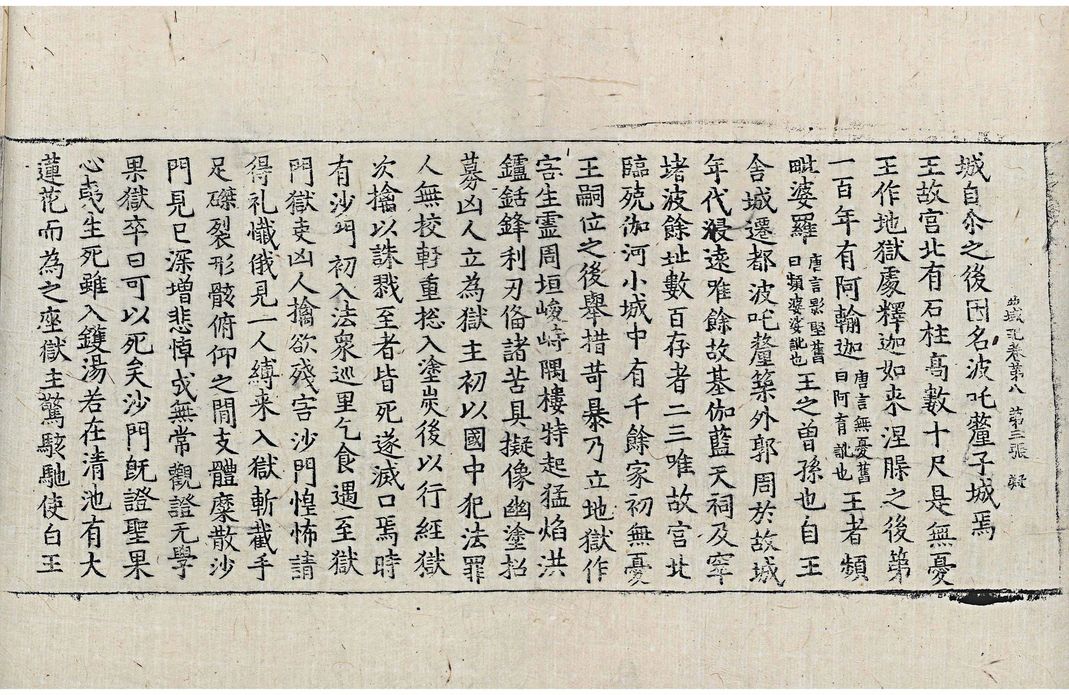 西域記卷第八　第三張　疑
城自尒之後因名波吒釐子城焉
王故宮北有石柱高數十尺是無憂
王作地獄處釋迦如来涅槃之後第
一百年有阿輸迦唐言無憂舊曰阿育訛也王者頻
毗婆羅唐言影堅舊曰頻婆娑訛也王之曾孫也自王
舍城遷都波吒釐築外郭周於故城
年代寖遠唯餘故基伽藍天祠及窣
堵波餘址數百存者二三唯故宮北
臨殑伽河小城中有千餘家初無憂
王嗣位之後舉措苛暴乃立地獄作
害生靈周垣峻峙隅樓特起猛焰洪
鑪銛鋒利刃俻諸苦具擬像幽塗招
募凶人立為獄主初以國中犯法罪
人無校輕重揔入塗炭後以行經獄
次擒以誅戮至者皆死遂滅口焉時
有沙門初入法衆巡里乞食遇至獄
門獄吏凶人擒欲殘害沙門惶怖請
得礼懺俄見一人縛来入獄斬截手
足磔裂形骸俯仰之間支體糜散沙
門見已深增悲悼成無常觀證无學
果獄卒曰可以死矣沙門旣證聖果
心夷生死雖入鑊湯若在清池有大
蓮花而為之座獄主驚駭馳使白王